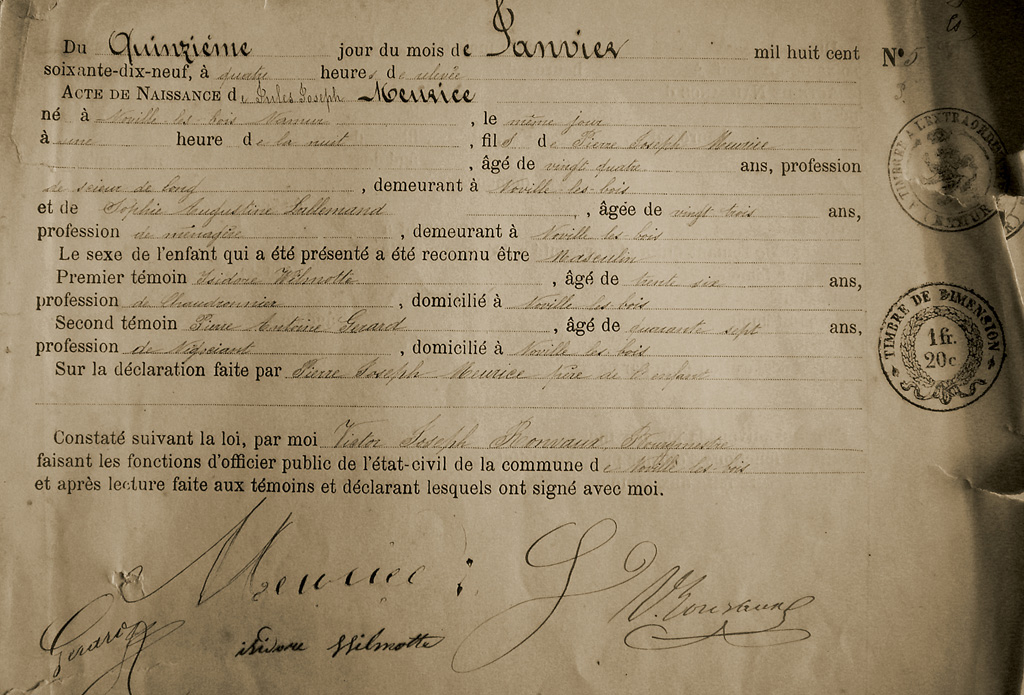 Du Quinzième jour du mois de Janvier mil huit cent
N° 5
soixante-dix-neuf, à quatre heures de relevée
ACTE DE NAISSANCE de Jules Joseph Meurice
né à Noville les bois Namur, le même jour
à une heure de la nuit, fils de Pierre Joseph Meurice
, âgé de vingt quatre ans, profession
de scieur de long, demeurant à Noville les-bois
et de Sophie Augustine Lallemand, âgée de vingt trois ans,
profession de ménagère, demeurant à Noville les bois
Le sexe de l'enfant qui a été présenté a été reconnu être Masculin
Premier témoin Isidore Wilmotte, âgé de trente six ans,
profession de Chaudronnier, domicilié à Noville les-bois
Second témoin Pierre Antoine Gerard, âgé de quarante sept ans,
profession de Négociant, domicilié à Noville les bois
Sur la déclaration faite par Pierre Joseph Meurice père de l'enfant
Constaté suivant la loi, par moi Victor Joseph Bonvaux, Bourgmestre
faisant les fonctions d'officier public de l'état-civil de la commune de Noville les bois
et après lecture faite aux témoins et déclarant lesquels ont signé avec moi.
TIMBRE A L'EXTRAORDRE
TIMBRE DE DIMENSION
1 fr.
20c
Meurice
V. Bonvaux
Gerard
isidore Wilmotte